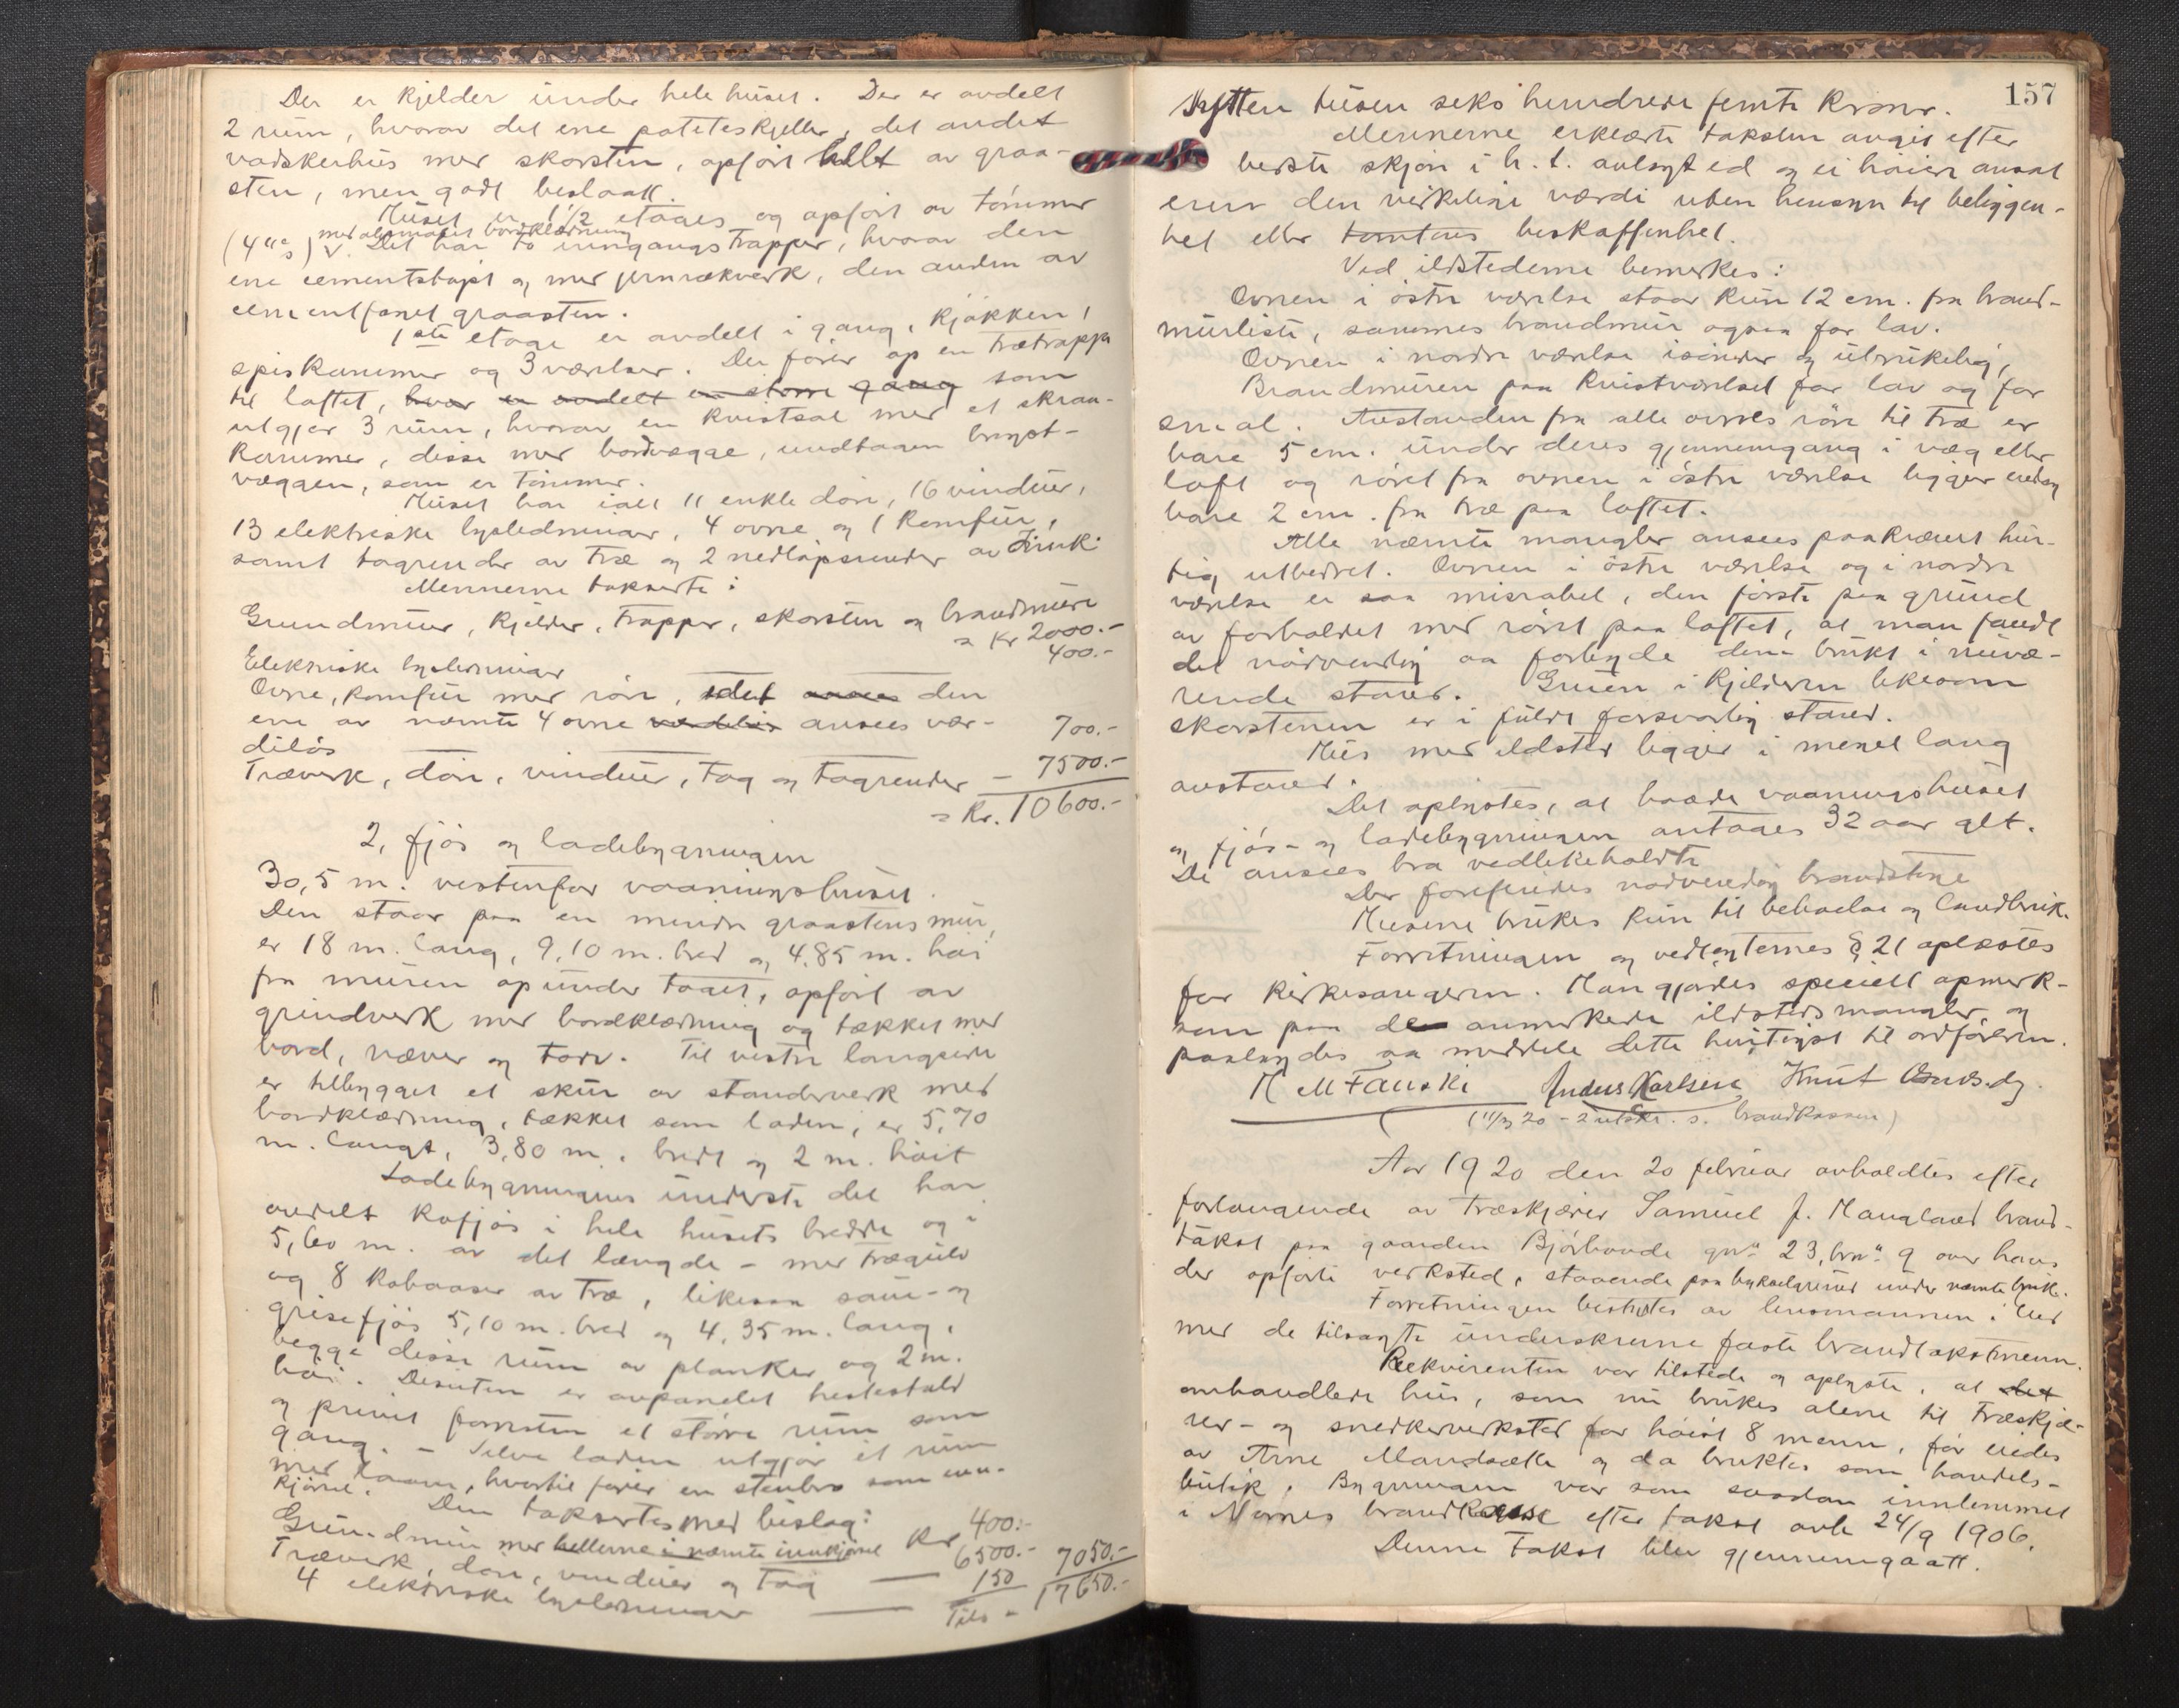 Der er kjelder under hele huset. Der er avdelt
2 rum, hvorav det ene poteteskjeller, det andet
vaskerhus med skorsten, opført helt av graa-
sten, men godt beslaatt.
Huset er 1 1/2 etages og opført av tømmer
med almindel bordklædning
(4"s) v. Det har to inngangstrapper, hvorav den
ene cementstøpt og med jernrækverk, den anden av
cementfuget graasten.
1ste etage er avdelt i gang, kjøkken,
spiskammer og 3 værelser. Der fører op en trætrappe
til loftet, hvor er avdelt en større gang som
utgjør 3 rum, hvorav en kvistsal med et skraa-
kammer, disse med bordvægge, undtagen bryst-
væggen, som er tømmer.
Huset har ialt 11 enkle døre, 16 vinduer,
13 elektriske lysledninger, 4 ovne og 1 komfur,
samt tagrender av træ og 2 nedløpsrender av sink.
Mennerne takserte:
Grundmur, kjelder, trapper, skorsten og brandmure
= Kr 2000.-
Elektriske lysledninger 400.-
Ovne, komfur med rør, idet ansees den
ene av nævnte 4 ovne værdiløs ansees vær-
diløs 700.-
Træverk, døre, vinduer, tag og tagrender - 7500.-
= Kr. 10600.-
2, fjøs og ladebygningen
30,5 m. vestenfor vaaningshuset.
Den staar paa en mindre graastens mur,
er 18 m. lang, 9,10 m. bred og 4,85 m. høi
fra muren op under taget, opført av
grindverk med bordklædning og tækket med
bord, næver og torv. Til vestre langside
er tilbygget et skur av standerverk med
bordklædning, tækket som laden, er 5,70
m. langt, 3,80 m. bredt og 2 m. høit
Ladebygningens underste del har
avdelt kofjøs i hele husets bredde og i
5,60 m. av det længde - med trægulv
og 8 kobaaser av træ, likesaa saue- og
grisefjøs 5,10 m. bred og 4,35 m. lang,
begge disse rum av planker og 2 m.
høi. Desuten er avpanelet hestestald
og privet forresten et større rum som
gang. - Selve laden utgjør et rum
med laave, hvortil fører en stenbro som inn-
kjørsel.
Den taksertes med beslag:
Grundmur med hellerne i nævnte innkjørsel Kr 400.-
Træverk, døre, vinduer og tag 6500.-
4 elektriske lysledninger 150 7050.-
Tils = 17650.-
157
Sytten tusen seks hundrede femti kroner.
Mennerne erklærte taksten avgit efter
beste skjøn i h. t. avlagt ed og ei høiere ansat
enn den virkelige værdi uten hensyn til beliggen-
het eller tomtens beskaffenhet.
Ved ildstederne bemerkes:
Ovnen i østre værelse staar kun 12 cm. fra brand-
murliste, sammes brandmur ogsaa for lav.
Ovnen i nordre værelse isønder og ubrukelig,
Brandmuren paa kvistværelset for lav og for
smal. Avstanden fra alle ovnes rør til træ er
bare 5 cm. under deres gjennemgang i væg eller
loft og røret fra ovnen i østre værelse ligger endog
bare 2 cm. fra træ paa loftet.
Alle nævnte mangler ansees paakrævet hur-
tig utbedret. Ovnen i østre værelse og i nordre
værelse er saa miserabel, den første paa grund
av forholdet med røret paa loftet, at man fandt
det nødvendig aa forbyde dem brukt i nuvæ-
rende stand. Gruen i kjelderen likesom
skorstenen er i fuldt forsvarlig stand.
Hus med ildsted ligger i meget lang
avstand.
Det oplystes, at baade vaaningshuset
og fjøs- og ladebygningen antages 32 aar glt.
De ansees bra vedlikeholdte
Der forefindes nødvendig brandstige
Husene brukes kun til beboelse og landbruk.
Forretningen og vedtægternes § 21 oplæstes
for kirkesangeren. Han gjordes specielt opmerk-
som paa de anmerkede ildstedsmangler og
paalagdes aa meddele dette hurtigst til ordføreren.
H M Fauski Anders Karlsen Knut
(11/3 20 - 2 utskr. s. brandkassen)
Aar 1920 den 20 februar avholdtes efter
forlangende av træskjærer Samuel J. Haugland brand-
takst paa gaarden Bjørhovde gno 23, brno 9 over hans
der opførte verksted, staaende paa bykselgrund under nævnte bruk.
Forretningen bestyrtes av lensmannen i Ul
med de tilsagte underskrevne faste brandtakstmenn.
Rekvirenten var tilstede og oplyste, at det
omhandlede hus, som nu brukes alene til træskjæ-
rer- og snedkerverksted for høist 8 menn, før eides
av Arne Mandsætte og da bruktes som handels-
butik. Bygningen var som saadan innlemmet
i Norges brandkasse efter takst avh. 24/9 1906.
Denne takst blev gjennemgaatt.